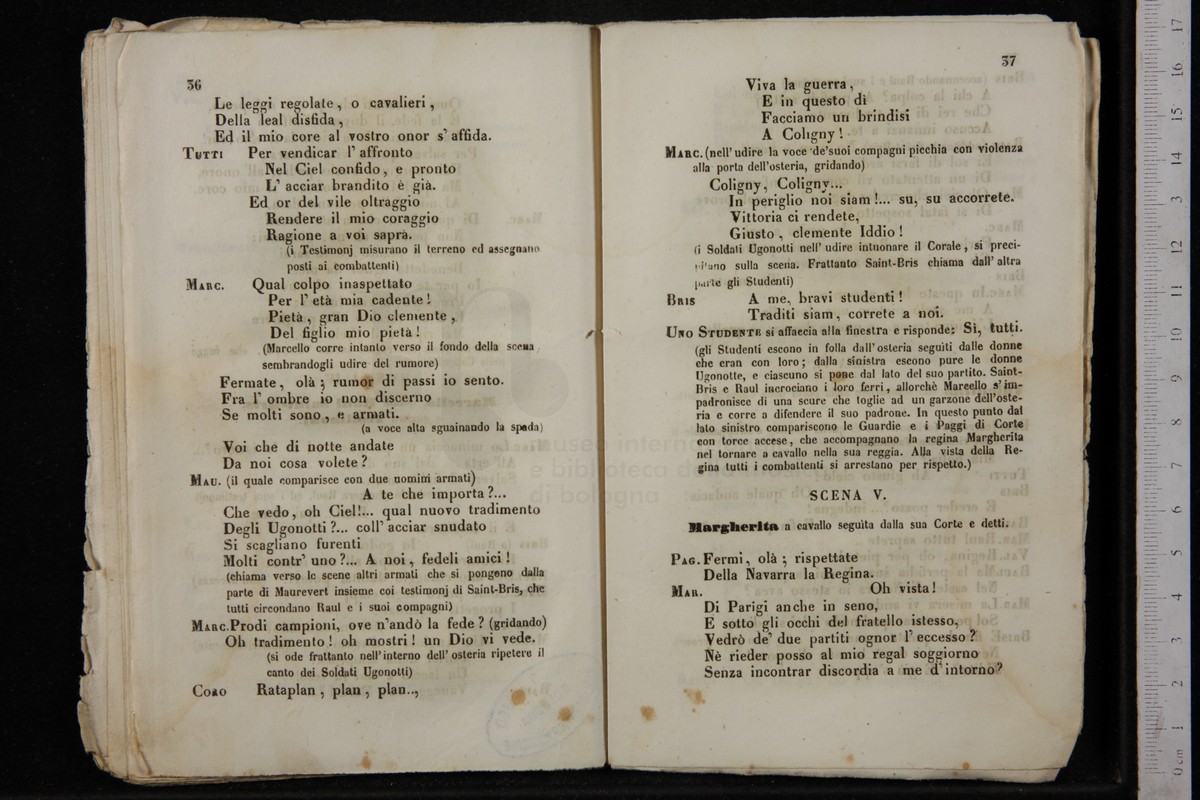 36
Le leggi regolate, o cavalieri,
Della leal disfida,
Ed il mio core al vostro onor s' affida.
TUTTI Per vendicar l' affronto
Nel Ciel confido, e pronto
L' acciar brandito è già.
Ed or del vile oltraggio
Rendere il mio coraggio
Ragione a voi saprà.
(i Testimonj misurano il terreno ed assegnano
posti ai combattenti)
MARC. Qual colpo inaspettato
Per l' età mia cadente!
Pietà, gran Dio clemente,
Del figlio mio pietà!
(Marcello corre intanto verso il fondo della scena
sembrandogli udire del rumore)
Fermate, olà; rumor di passi io sento.
Fra l' ombre io non discerno
Se molti sono, e armati.
(a voce alta sguainando la spada)
Voi che di notte andate
Da noi cosa volete?
MAU. (il quale comparisce con due uomini armati)
A te che importa?...
Che vedo, oh Ciel!... qual nuovo tradimento
Degli Ugonotti?... coll' acciar snudato
Si scagliano furenti
Molti contr' uno?... A noi, fedeli amici!
(chiama verso le scene altri armati che si pongono dalla
parte di Maurevert insieme coi testimonj di Saint-Bris, che
tutti circondano Raul e i suoi compagni)
MARC. Prodi campioni, ove n'andò la fede? (gridando)
Oh tradimento! oh mostri! un Dio vi vede.
(si ode frattanto nell'interno dell' osteria ripetere il
canto dei Soldati Ugonotti)
CORO Rataplan, plan, plan..,
37
Viva la guerra,
E in questo dì
Facciamo un brindisi
A Coligny!
MARC. (nell' udire la voce de'suoi compagni picchia con violenza
alla porta dell'osteria, gridando)
Coligny, Coligny...
In periglio noi siam!... su, su accorrete.
Vittoria ci rendete,
Giusto, clemente Iddio!
(i Soldati Ugonotti nell' udire intuonare il Corale, si preci-
pitano sulla scena. Frattanto Saint-Bris chiama dall' altra
parte gli Studenti)
BRIS A me, bravi studenti!
Traditi siam, correte a noi.
UNO STUDENTE si affaccia alla finestra e risponde: Sì, tutti.
(gli Studenti escono in folla dall' osteria seguiti dalle donne
che eran con loro; dalla sinistra escono pure le donne
Ugonotte, e ciascuno si pone dal lato del suo partito. Saint-
Bris e Raul incrociano i loro ferri, allorchè Marcello s' im-
padronisce di una scure che toglie ad un garzone dell'oste-
ria e corre a difendere il suo padrone. In questo punto dal
lato sinistro compariscono le Guardie e i Paggi di Corte
con torce accese, che accompagnano la regina Margherita
nel tornare a cavallo nella sua reggia. Alla vista della Re-
gina tutti i combattenti si arrestano per rispetto.)
SCENA V.
Margherita a cavallo seguìta dalla sua Corte e detti.
PAG. Fermi, olà; rispettate
Della Navarra la Regina.
MAR. Oh vista!
Di Parigi anche in seno,
E sotto gli occhi del fratello istesso,
Vedrò de' due partiti ognor l' eccesso?
Nè rieder posso al mio regal soggiorno
Senza incontrar discordia a me d' intorno?
museo inter
e biblioteca d
di bologna
0 cm 1 2 3 4 5 6 7 8 9 10 11 12 13 14 15 16 17